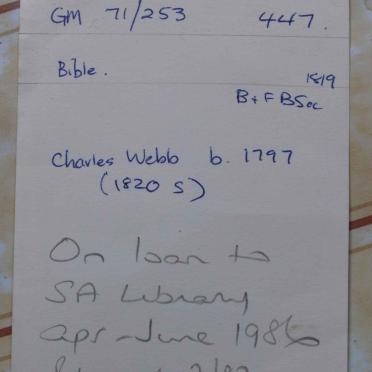 GM 71/253 447.
Bible.
1819
B+FBSoc
Charles Webb b. 1797
(1820 S)
On loan to
SA Library
apr-June 1986